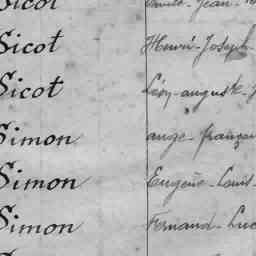 Sicot Jean
Sicot Henri-Joseph
Sicot Léon-auguste-J
Simon ange-françois
Simon Eugène-Louis-
Simon Fernand-Luc